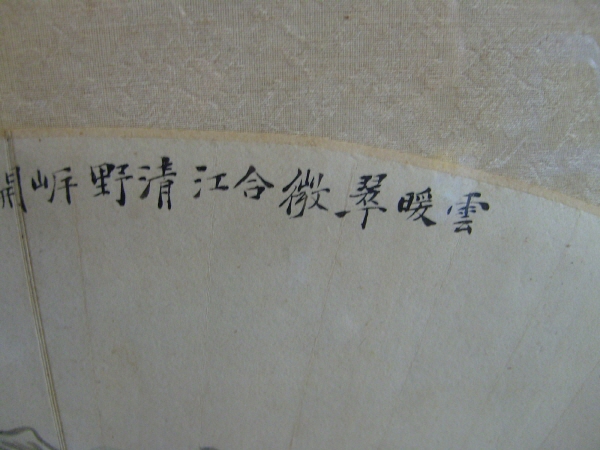 雲暖翠微合江清野岸開